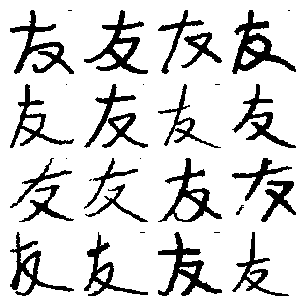 友友友友
友友友友
友友友友
友友友友